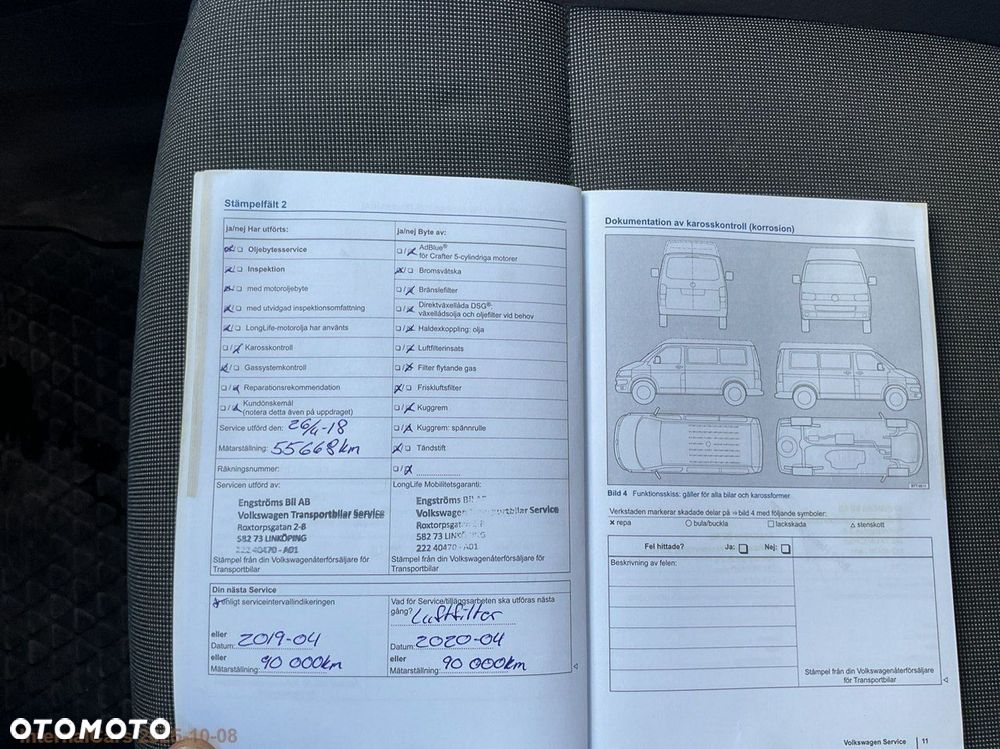 Stämpelfält 2
ja/nej Har utförts:
☒/☐ Oljebytesservice
☒/☐ Inspektion
☒/☐ med motoroljebyte
☒/☐ med utvidgad inspektionsomfattning
☒/☐ LongLife-motorolja har använts
☐/☒ Karosskontroll
☒/☐ Gassystemkontroll
☐/☒ Reparationsrekommendation
☐/☒ Kundönskemål
(notera detta även på uppdraget)
Service utförd den: 26/4-18
Mätarställning: 55668km
Räkningsnummer:
ja/nej Byte av:
☐/☒ AdBlue®
för Crafter 5-cylindriga motorer
☒/☐ Bromsvätska
☐/☒ Bränslefilter
☐/☒ Direktväxellåda DSG®:
växellådsolja och oljefilter vid behov
☐/☒ Haldexkoppling: olja
☐/☒ Luftfilterinsats
☐/☒ Filter flytande gas
☒/☐ Friskluftsfilter
☐/☒ Kuggrem
☐/☒ Kuggrem: spännrulle
☒/☐ Tändstift
☐/☒
Servicen utförd av:
Engströms Bil AB
Volkswagen Transportbilar Service
Roxtorpsgatan 2-8
582 73 LINKÖPING
222 40470 - A01
Stämpel från din Volkswagenåterförsäljare för
Transportbilar
LongLife Mobilitetsgaranti:
Engströms Bil AB
Volkswagen Transportbilar Service
Roxtorpsgatan
582 73 LINKÖPING
222 40470 - A01
Stämpel från din Volkswagenåterförsäljare för
Transportbilar
Din nästa Service
enligt serviceintervallindikeringen
eller
Datum: 2019-04
eller
Mätarställning: 90 000km
Vad för Service/tilläggsarbeten ska utföras nästa
gång? Luftfilter
Datum: 2020-04
eller
Mätarställning: 90 000km
Dokumentation av karosskontroll (korrosion)
Bild 4 Funktionsskiss: gäller för alla bilar och karossformer
Verkstaden markerar skadade delar på ⇒ bild 4 med följande symboler:
× repa ○ bula/buckla □ lackskada △ stenskott
Fel hittade? Ja: ☐ Nej: ☐
Beskrivning av felen:
Stämpel från din Volkswagenåterförsäljare
för Transportbilar
Volkswagen Service | 11
OTOMOTO